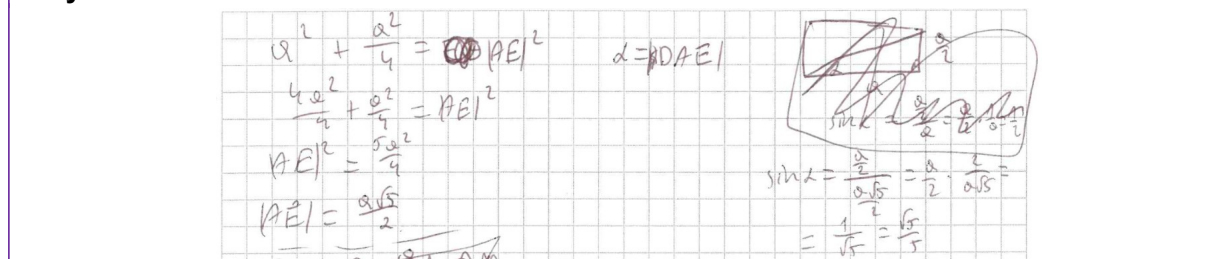 a² + a²/4 = |AE|²
α = |DAE|
4a²/4 + a²/4 = |AE|²
|AE|² = 5a²/4
|AE| = a√5/2
a/2
sin α =
sin α = (a/2)/(a√5/2) = a/2 · 2/(a√5) =
= 1/√5 = √5/5